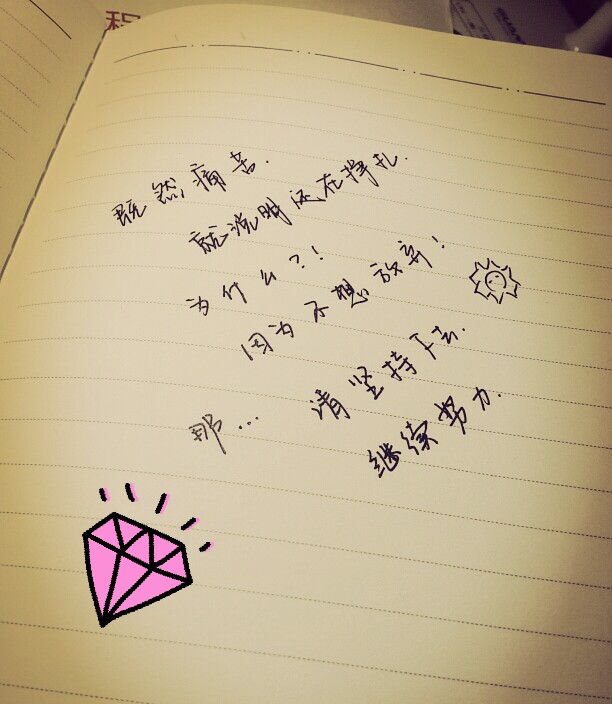 程
既然痛苦.
就说明还在挣扎.
为什么?!
因为不想放弃!
那... 请坚持下去.
继续努力.